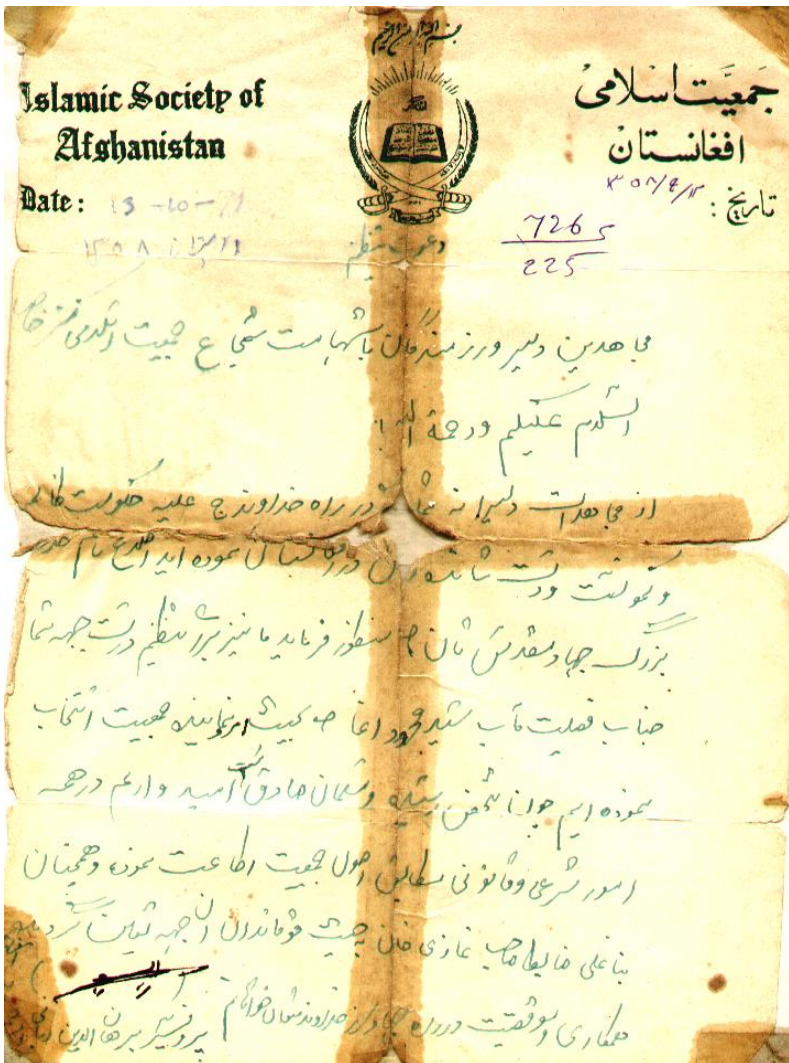 بسم الله الرحمن الرحیم
Islamic Society of
Afghanistan
جمعیت اسلامی
افغانستان
Date: 13-10-79
تاریخ:
726
225
دعوت تنظیم
مجاهدین دلیر و رزمندگان با شهامت شجاع جمعیت اسلامی
السلام علیکم و رحمة الله!
از مجاهدات دلیرانه شما که در راه خداوند ج علیه حکومت ظالم
و کمونست و دست نشانده در افغانستان نموده اید اطلاع
بزرگ جهاد مقدس تان منظور فرماید ما نیز برای تنظیم درست جبهه شما
جناب فضیلت مآب سید محمود اغا بحیث نماینده جمعیت انتخاب
نموده ایم چون شخص و مسلمان صادق است امید وارم در همه
امور شرعی و قانونی مطابق اصول جمعیت اطاعت نموده و همچنان
بنا علی صاحب غازی خان به حیث قوماندان ان جبهه تعین گردید
همکاری و موفقیت در راه جهاد از خداوند خواهانم
پروفیسر برهان الدین ربانی